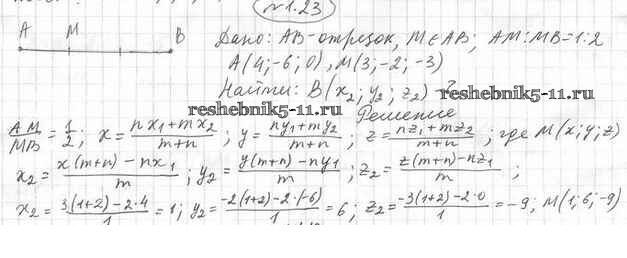 №1.23
A M B
Дано: AB-отрезок, M∈AB; AM:MB=1:2
A(4;-6;0), M(3;-2;-3)
Найти: B(x₂; y₂; z₂)-?
reshebnik5-11.ru reshebnik5-11.ru
Решение
AM/MB = 1/2; x = (nx₁+mx₂)/(m+n); y = (ny₁+my₂)/(m+n); z = (nz₁+mz₂)/(m+n); где M(x;y;z)
x₂ = (x(m+n)-nx₁)/m; y₂ = (y(m+n)-ny₁)/m; z₂ = (z(m+n)-nz₁)/m;
x₂ = (3(1+2)-2·4)/1 = 1; y₂ = (-2(1+2)-2·(-6))/1 = 6; z₂ = (-3(1+2)-2·0)/1 = -9; M(1;6;-9)